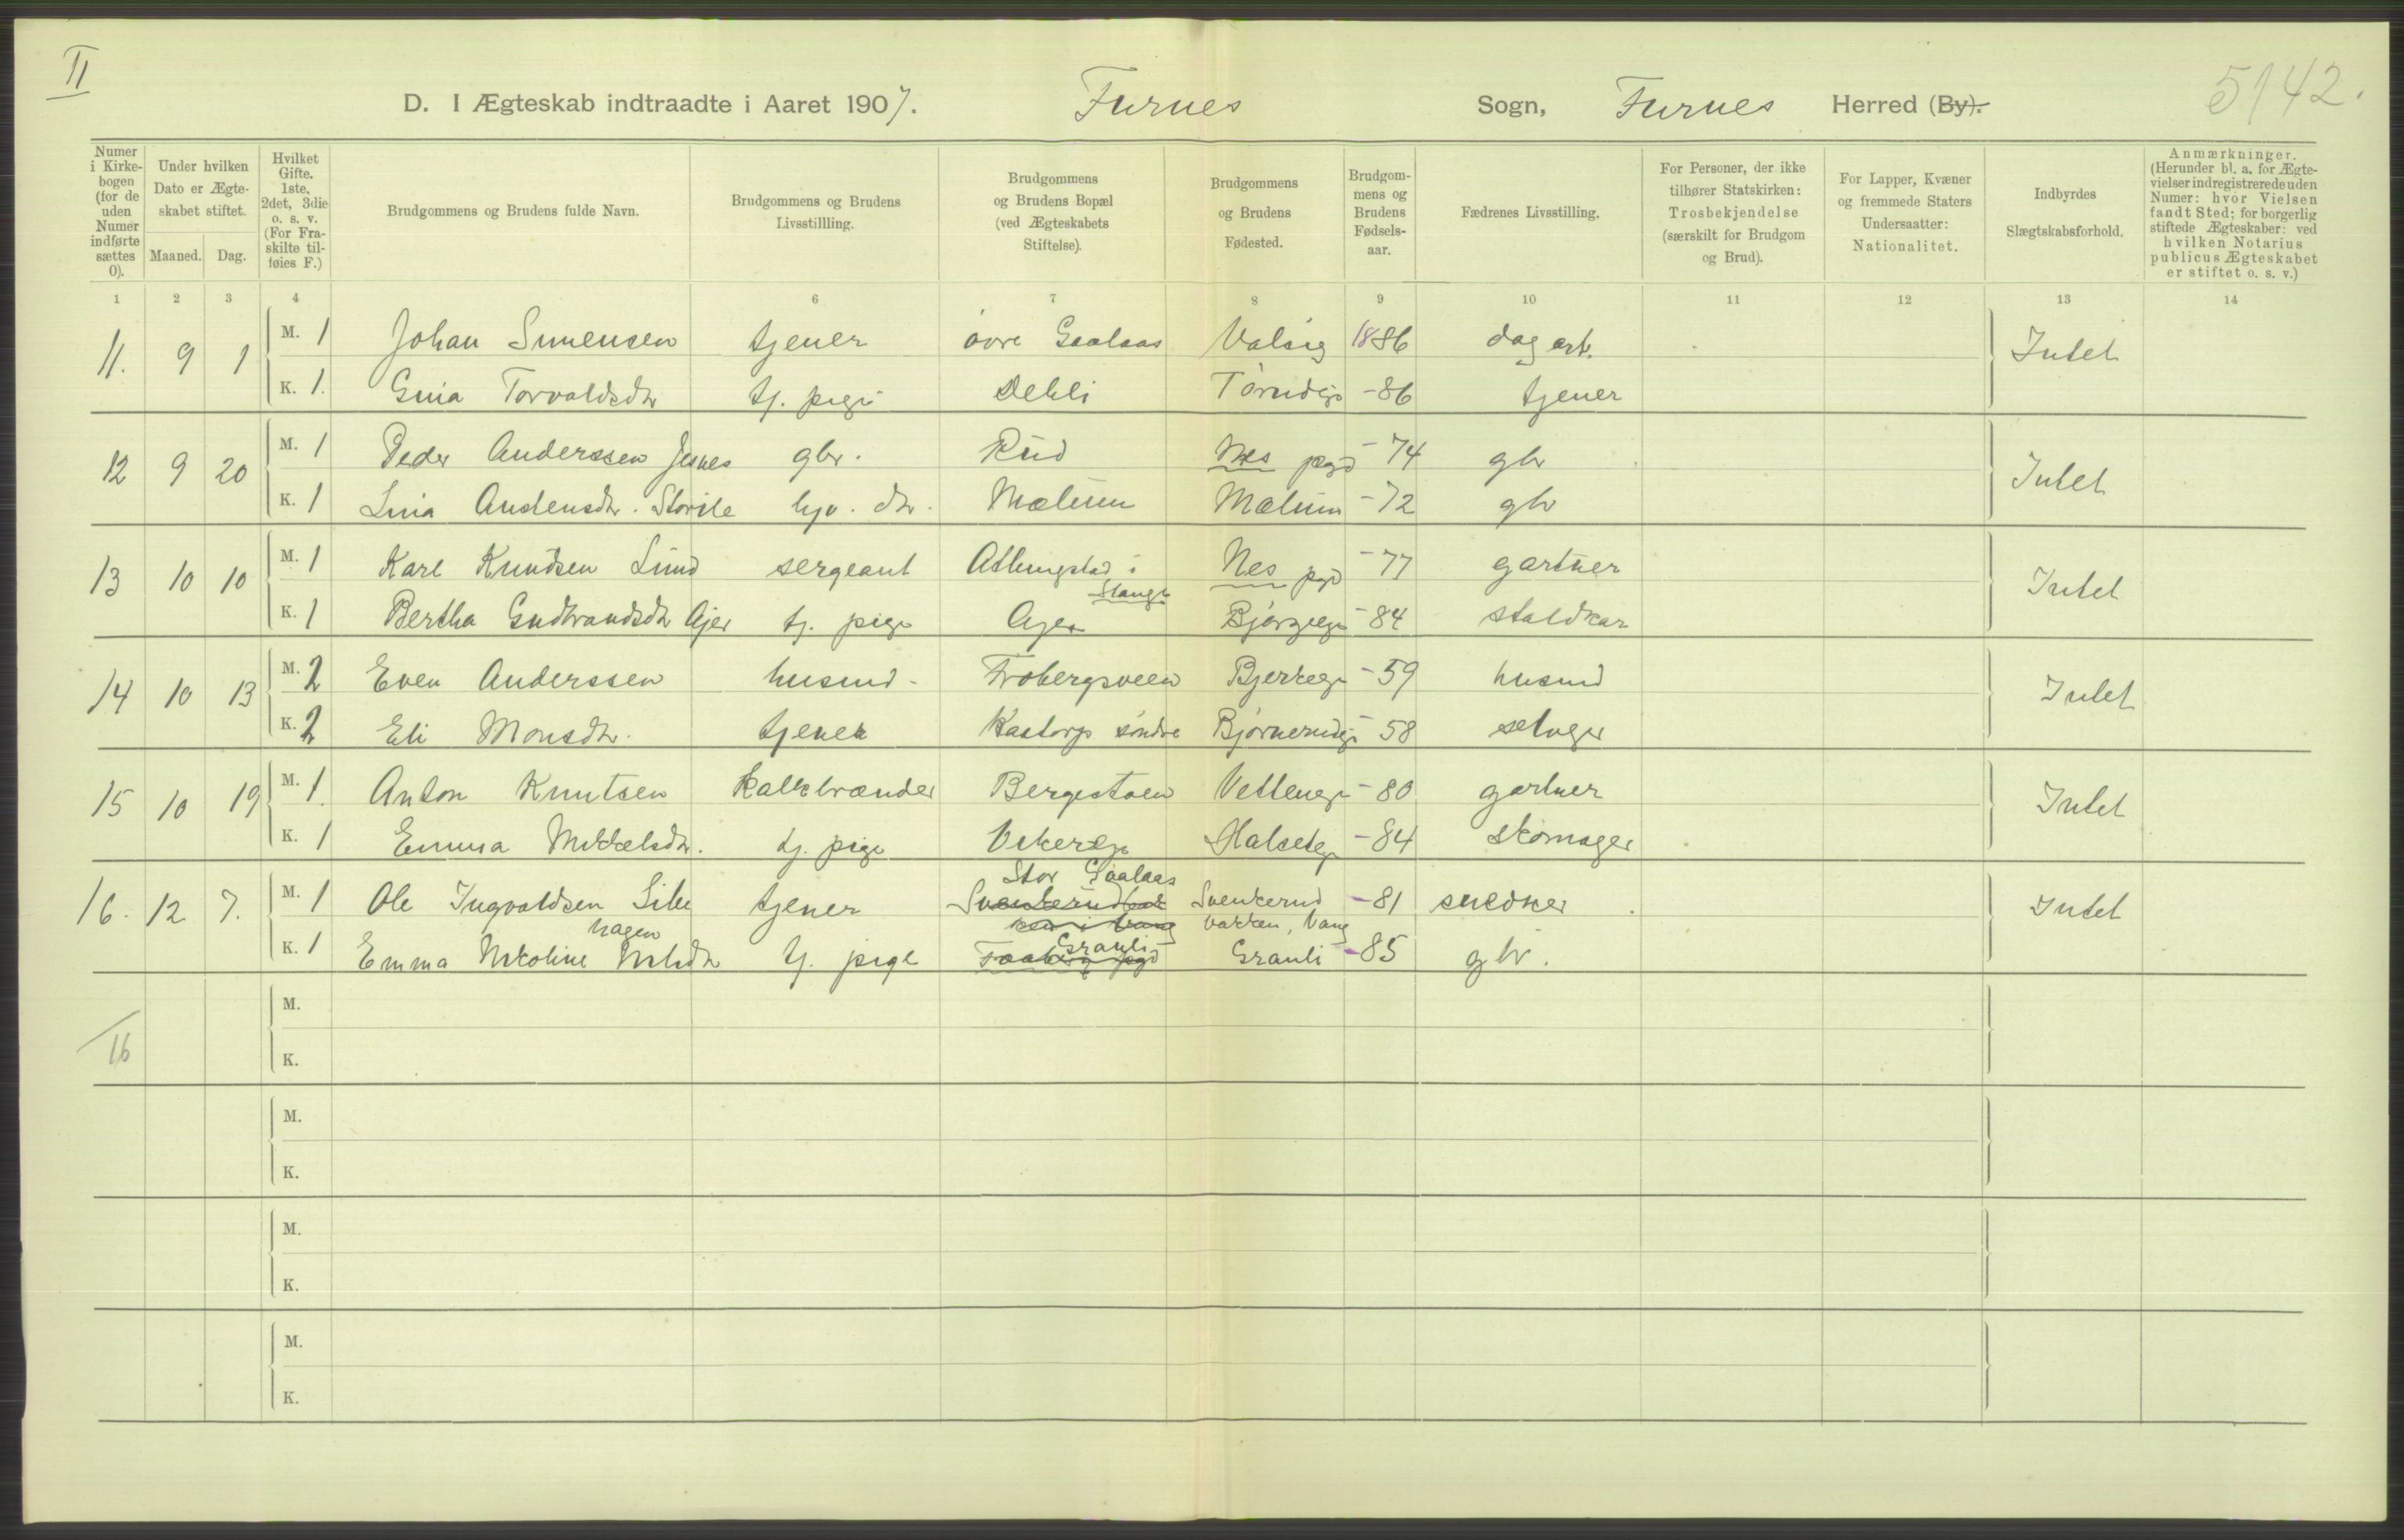 II
5142.
D. I Ægteskab indtraadte i Aaret 1907. Furnes Sogn, Furnes Herred (By).
Numer i Kirkebogen (for de uden Numer indførte sættes 0).
Under hvilken Dato er Ægteskabet stiftet.
Maaned. Dag.
Hvilket Gifte. 1ste, 2det, 3die o. s. v. (For Fraskilte tilføies F.)
Brudgommens og Brudens fulde Navn.
Brudgommens og Brudens Livsstillling.
Brudgommens og Brudens Bopæl (ved Ægteskabets Stiftelse).
Brudgommens og Brudens Fødested.
Brudgommens og Brudens Fødselsaar.
Fædrenes Livsstilling.
For Personer, der ikke tilhører Statskirken: Trosbekjendelse (særskilt for Brudgom og Brud).
For Lapper, Kvæner og fremmede Staters Undersaatter: Nationalitet.
Indbyrdes Slægtskabsforhold.
Anmærkninger. (Herunder bl. a. for Ægtevielser indregistrerede uden Numer: hvor Vielsen fandt Sted; for borgerlig stiftede Ægteskaber: ved hvilken Notarius publicus Ægteskabet er stiftet o. s. v.)
1 2 3 4 6 7 8 9 10 11 12 13 14
11. 9 1 M. 1 Johan Simensen tjener øvre Gaalaas Valsig 1886 dag arb. Intet
K. 1. Gina Torvaldsdtr tj. pige Dehli -86 tjener
12 9 20 M. 1 Peder Anderssen Jesnes gbr. Rud Nes pgd -74 gbr Intet
K. 1 Lina Andersdtr. Storile hjv. dtr. Mælum Mælum -72 gbr
13 10 10 M. 1 Karl Knudsen Lund sergeant i Stange Nes pgd -77 gartner Intet
K. 1 Bertha Gudbrandsdtr Ajer tj. pige Ajer -84 staldkar
14 10 13 M. 2 Even Anderssen husmd. Frobergsveen Bjerkeeje -59 husmd Intet
K. 2 Eli Monsdtr. tjener Kastorp søndre Bjørnerudeje -58
15 10 19 M. 1. Anton Knutsen kalkbrænder Bergestuen -80 gartner Intet
K. 1 Emma Mikkelsdtr. tj. pige -84 skomager
16. 12 7. M. 1 Ole Ingvaldsen Lille hagen tjener Stor Gaalaas Svenkerud bakken i Vang Svenkerud bakken, Vang -81 snedker Intet
K. 1 Emma Nikoline Nilsdtr tj. pige Granli Faaberg pgd Granli -85 gbr.
M.
16
K.
M.
K.
M.
K.
M.
K.